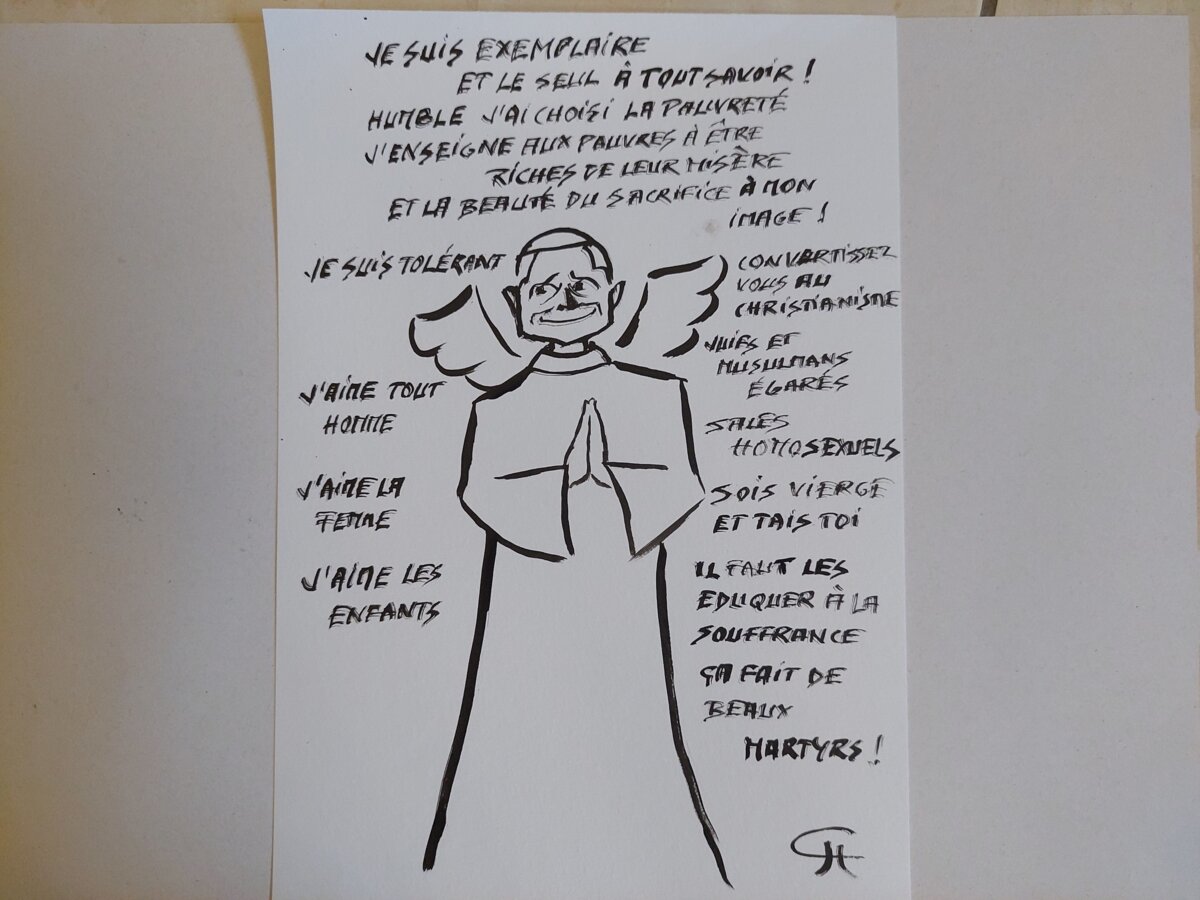 JE SUIS EXEMPLAIRE
ET LE SEUL À TOUT SAVOIR !
HUMBLE J'AI CHOISI LA PAUVRETÉ
J'ENSEIGNE AUX PAUVRES À ÊTRE
RICHES DE LEUR MISÈRE
ET LA BEAUTÉ DU SACRIFICE À MON
IMAGE !
JE SUIS TOLÉRANT
CONVERTISSEZ
VOUS AU
CHRISTIANISME
JUIFS ET
MUSULMANS
ÉGARÉS
J'AIME TOUT
HOMME
SALES
HOMOSEXUELS
J'AIME LA
FEMME
SOIS VIERGE
ET TAIS TOI
J'AIME LES
ENFANTS
IL FAUT LES
EDUQUER À LA
SOUFFRANCE
ÇA FAIT DE
BEAUX
MARTYRS !
GH